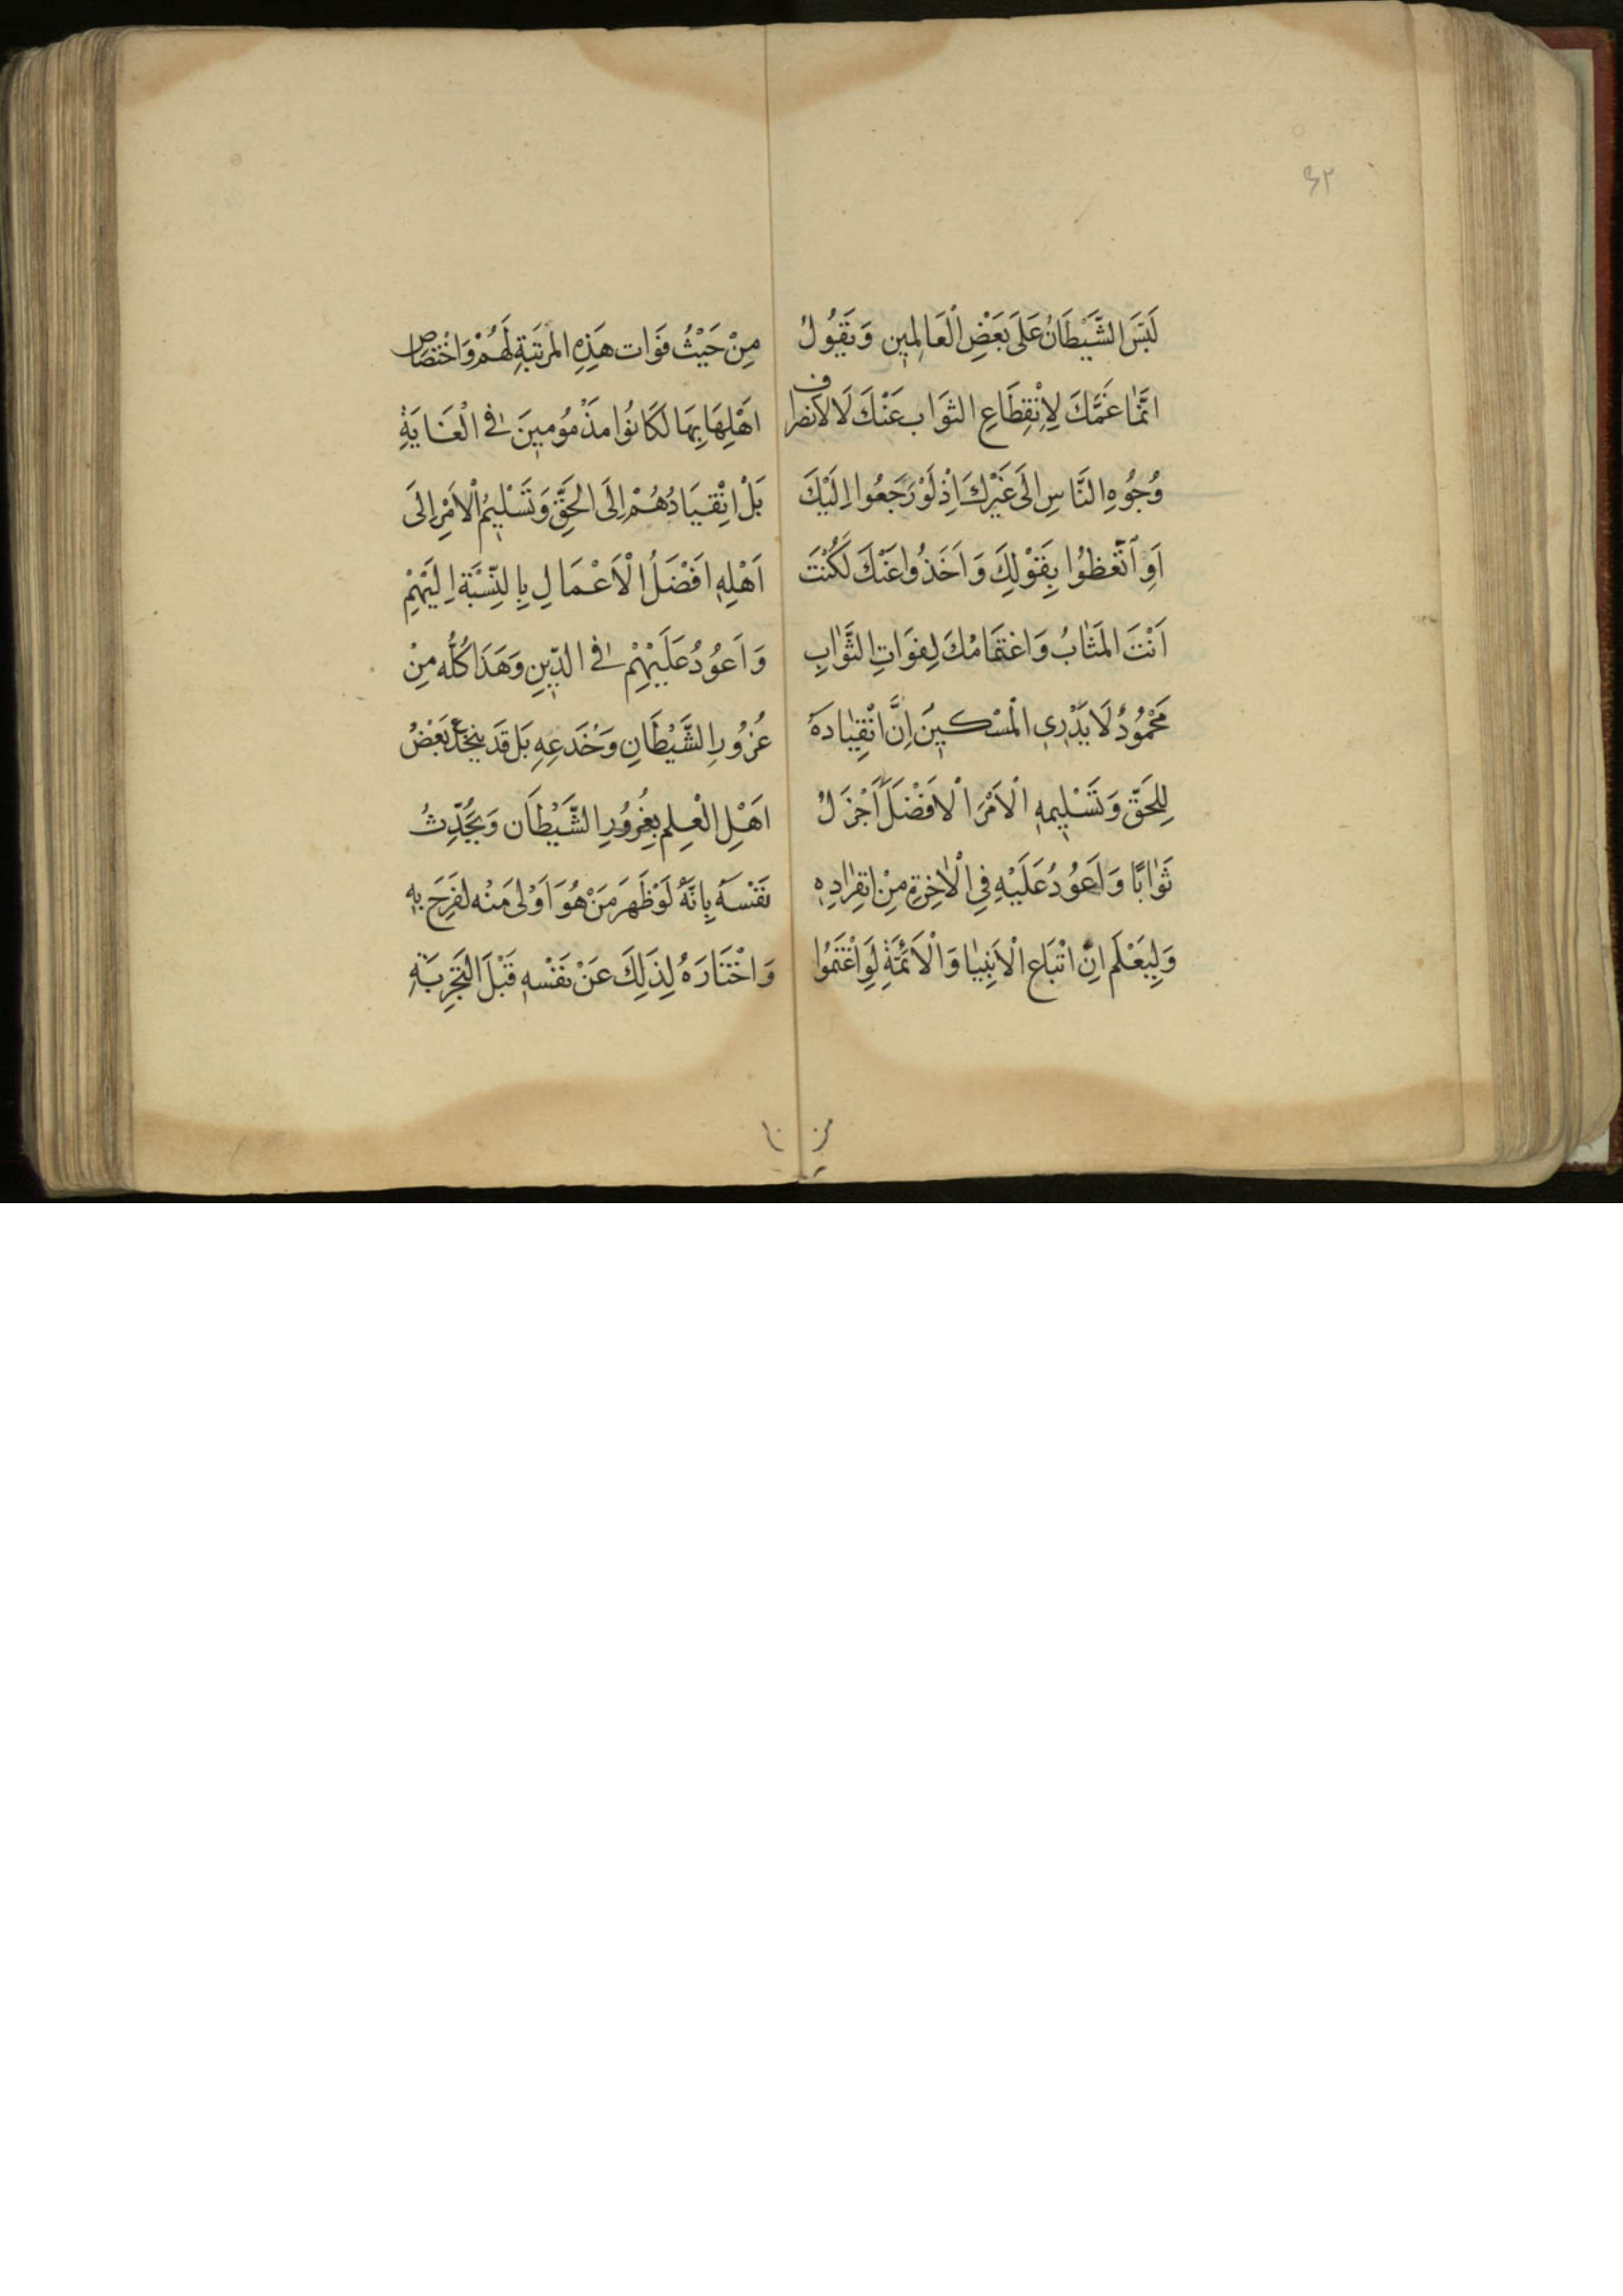 ٤٢
لَبَّسَ الشَّيْطَانُ عَلَى بَعْضِ الْعَالِمِينَ وَيَقُولُ
اِنَّمَا غَمَّكَ لِاِنْقِطَاعِ الثَوَابِ عَنْكَ لَا لِاَنصراف
وُجُوهِ النَّاسِ اِلَى غَيْرِكَ اِذْ لَوْ رَجَعُوا اِلَيْكَ
اَوِ اتَّعَظُوا بِقَوْلِكَ وَاَخَذُوا عَنْكَ لَكُنْتَ
اَنْتَ الْمَثَابُ وَاغْتِمَامُكَ لِفَوَاتِ الثَّوَابِ
مَحْمُودٌ لَا يَدْرِي الْمِسْكِينُ اِنَّ انْقِيَادَهُ
لِلْحَقِّ وَتَسْلِيمِهِ الْاَمْرَ الْاَفْضَلَ اَجْزَلُ
ثَوَابًا وَاَعْوَدُ عَلَيْهِ فِي الْاٰخِرَةِ مِنِ انفِرَادِهِ
وَلِيَعْلَم اِنَّ اتْبَاعِ الْاَنْبِيَا وَالْاَئِمَّةِ لَوِ اغْتَمُوا
مِنْ حَيْثُ فَوَات هَذِهِ الْمَرتَبَةِ لَهُمْ وَاخْتِصَاصِ
اَهْلِهَا بِهَا لَكَانُوا مَذْمُومِينَ فِي الْغَايَةِ
بَلْ انْقِيَادُهُمْ اِلَى الْحَقِّ وَتَسْلِيمُ الْاَمْرِ اِلَى
اَهْلِهِ اَفْضَلُ الْاَعْمَالِ بِالنِّسْبَةِ اِلَيْهِمْ
وَاَعْوَدُ عَلَيْهِمْ فِي الدِّينِ وَهَذَا كُلُّه مِنْ
غُرُورِ الشَّيْطَانِ وَخَدعِهِ بَل قَد يَنْخَدِع بَعْضُ
اَهْلِ الْعِلمِ بِغُرُورِ الشَّيْطَان وَيُحَدِّثُ
نَفْسَهُ بِاَنَّهُ لَوْ ظَهَرَ مَنْ هُوَ اَوْلَى مَنْه لَفَرِحَ بِهِ
وَاخْتَارَهُ لِذَلِكَ عَنْ نَفْسِهِ قَبْلَ التَجْرِبَةِ
من